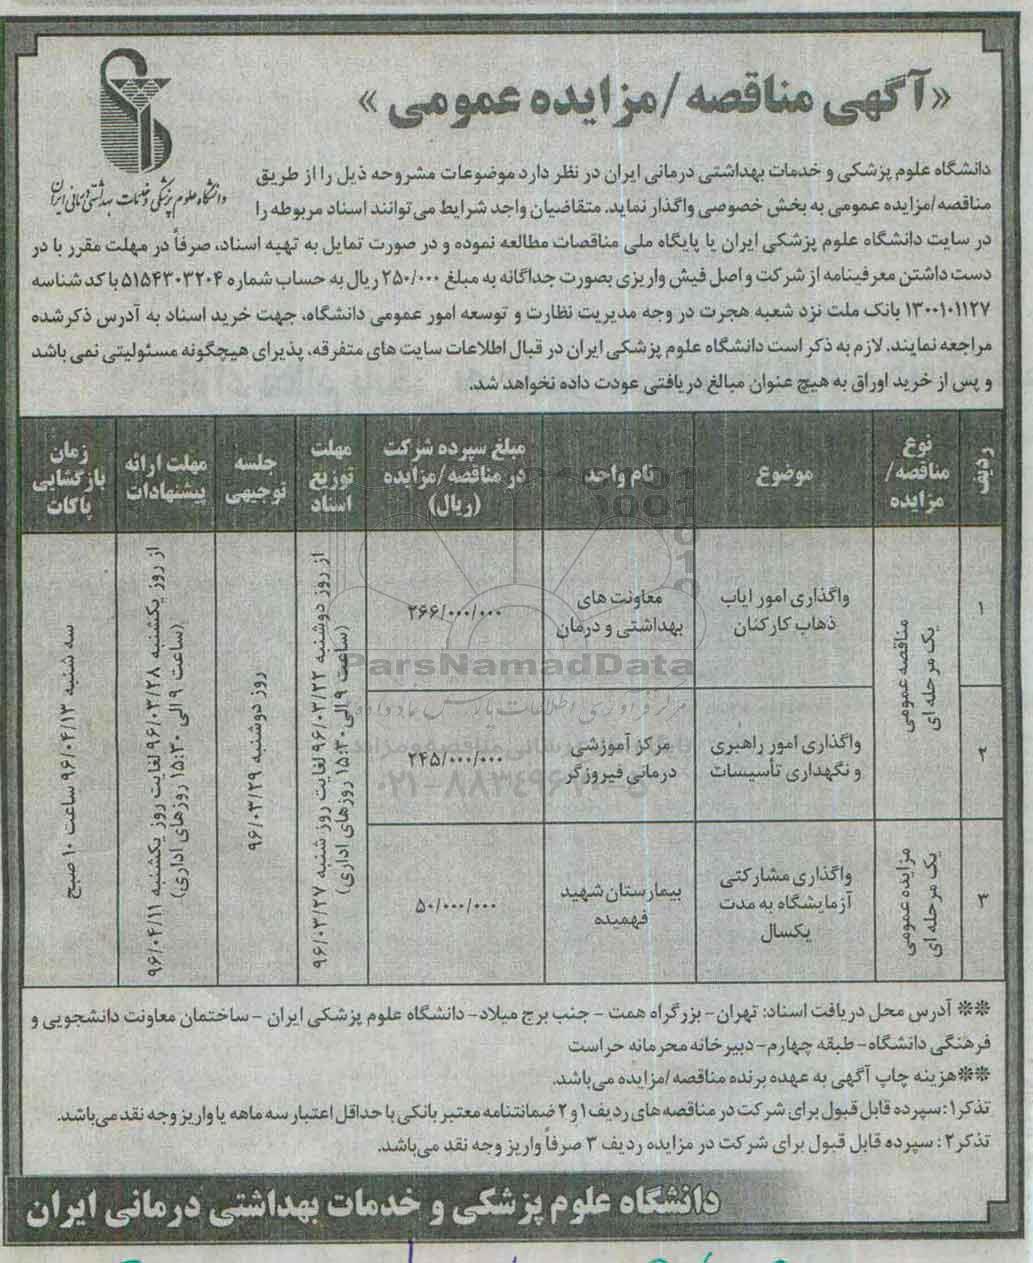 «آگهی مناقصه /مزایده عمومی»
دانشگاه علوم پزشکی و خدمات بهداشتی درمانی ایران
دانشگاه علوم پزشکی و خدمات بهداشتی درمانی ایران در نظر دارد موضوعات مشروحه ذیل را از طریق
مناقصه/مزایده عمومی به بخش خصوصی واگذار نماید. متقاضیان واجد شرایط می توانند اسناد مربوطه را
در سایت دانشگاه علوم پزشکی ایران یا پایگاه ملی مناقصات مطالعه نموده و در صورت تمایل به تهیه اسناد، صرفاً در مهلت مقرر با در
دست داشتن معرفینامه از شرکت و اصل فیش واریزی بصورت جداگانه به مبلغ ۲۵۰/۰۰۰ ریال به حساب شماره ۵۱۵۴۳۰۳۲۰۴ با کد شناسه
۱۳۰۰۱۰۱۱۲۷ بانک ملت نزد شعبه هجرت در وجه مدیریت نظارت و توسعه امور عمومی دانشگاه، جهت خرید اسناد به آدرس ذکرشده
مراجعه نمایند. لازم به ذکر است دانشگاه علوم پزشکی ایران در قبال اطلاعات سایت های متفرقه، پذیرای هیچگونه مسئولیتی نمی باشد
و پس از خرید اوراق به هیچ عنوان مبالغ دریافتی عودت داده نخواهد شد.
ردیف
نوع
مناقصه/
مزایده
موضوع
نام واحد
مبلغ سپرده شرکت
در مناقصه/مزایده
(ریال)
مهلت
توزیع
اسناد
جلسه
توجیهی
مهلت ارائه
پیشنهادات
زمان
بازگشایی
پاکات
۱
مناقصه عمومی
یک مرحله ای
واگذاری امور ایاب
ذهاب کارکنان
معاونت های
بهداشتی و درمان
۲۶۶/۰۰۰/۰۰۰
از روز دوشنبه ۹۶/۰۳/۲۲ لغایت روز شنبه ۹۶/۰۳/۲۷
(ساعت ۹ الی ۱۵:۳۰ روزهای اداری)
روز دوشنبه ۹۶/۰۳/۲۹
از روز یکشنبه ۹۶/۰۳/۲۸ لغایت روز یکشنبه ۹۶/۰۴/۱۱
(ساعت ۹ الی ۱۵:۳۰ روزهای اداری)
سه شنبه ۹۶/۰۴/۱۳ ساعت ۱۰ صبح
۲
واگذاری امور راهبری
و نگهداری تأسیسات
مرکز آموزشی
درمانی فیروزگر
۲۴۵/۰۰۰/۰۰۰
۳
مزایده عمومی
یک مرحله ای
واگذاری مشارکتی
آزمایشگاه به مدت
یکسال
بیمارستان شهید
فهمیده
۵۰/۰۰۰/۰۰۰
ParsNamadData
** آدرس محل دریافت اسناد: تهران- بزرگراه همت - جنب برج میلاد- دانشگاه علوم پزشکی ایران - ساختمان معاونت دانشجویی و
فرهنگی دانشگاه- طبقه چهارم- دبیرخانه محرمانه حراست
**هزینه چاپ آگهی به عهده برنده مناقصه /مزایده می باشد.
تذکر۱: سپرده قابل قبول برای شرکت در مناقصه های ردیف ۱ و ۲ ضمانتنامه معتبر بانکی با حداقل اعتبار سه ماهه یا واریز وجه نقد می باشد.
تذکر۲: سپرده قابل قبول برای شرکت در مزایده ردیف ۳ صرفاً واریز وجه نقد می باشد.
دانشگاه علوم پزشکی و خدمات بهداشتی درمانی ایران